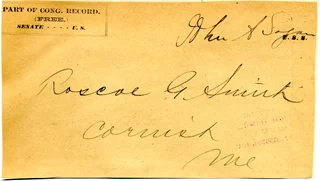 PART OF CONG. RECORD.
(FREE.)
SENATE - - - - - U. S.
John A Logan
U. S. S.
Roscoe G. Smith
Cornish
Me